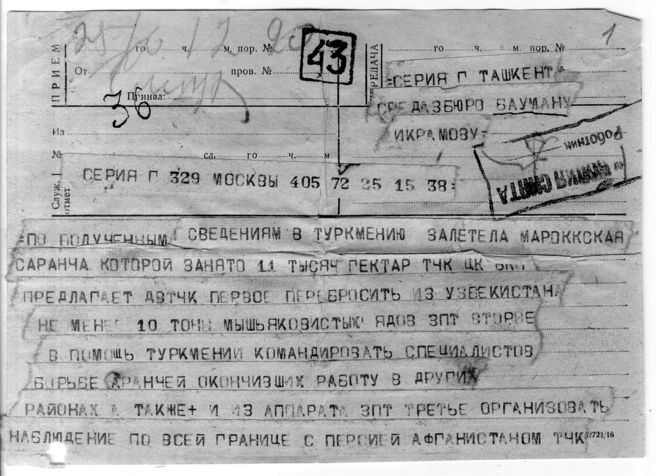 ПРИЕМ
го ч. м. пор. №
От пров. №
Принял:
36
43
ПЕРЕДАЧА
го ч. м. пор. №
1
=СЕРИЯ Г ТАШКЕНТ
СРЕДАЗБЮРО БАУМАНУ
ИКРАМОВУ=
Из
№ сл. го ч. м
Служ. отмет
СЕРИЯ Г 329 МОСКВЫ 405 72 25 15 38=
Работник
=ПО ПОЛУЧЕННЫМ СВЕДЕНИЯМ В ТУРКМЕНИЮ ЗАЛЕТЕЛА МАРОККСКАЯ
САРАНЧА КОТОРОЙ ЗАНЯТО 11 ТЫСЯЧ ГЕКТАР ТЧК ЦК
ПРЕДЛАГАЕТ ДВТЧК ПЕРВОЕ ПЕРЕБРОСИТЬ ИЗ УЗБЕКИСТАНА
НЕ МЕНЕЕ 10 ТОНН МЫШЬЯКОВИСТЫХ ЯДОВ ЗПТ ВТОРОЕ
В ПОМОЩЬ ТУРКМЕНИИ КОМАНДИРОВАТЬ СПЕЦИАЛИСТОВ
БОРЬБЕ АРАНЧЕЙ ОКОНЧИВШИХ РАБОТУ В ДРУГИХ
РАЙОНАХ А ТАКЖЕ+ И ИЗ АППАРАТА ЗПТ ТРЕТЬЕ ОРГАНИЗОВАТЬ
НАБЛЮДЕНИЕ ПО ВСЕЙ ГРАНИЦЕ С ПЕРСИЕЙ АФГАНИСТАНОМ ТЧК